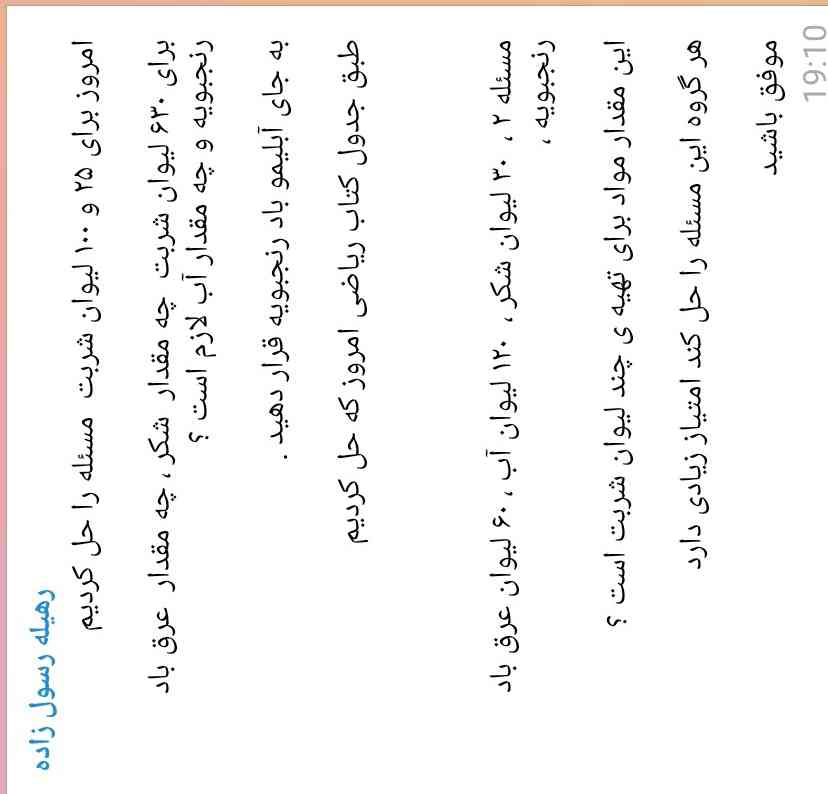 رهیله رسول زاده
امروز برای ۲۵ و ۱۰۰ لیوان شربت مسئله را حل کردیم
برای ۶۳۰ لیوان شربت چه مقدار شکر ، چه مقدار عرق باد
رنجبویه و چه مقدار آب لازم است ؟
به جای آبلیمو باد رنجبویه قرار دهید .
طبق جدول کتاب ریاضی امروز که حل کردیم
مسئله ۲ ، ۳۰ لیوان شکر ، ۱۲۰ لیوان آب ، ۶۰ لیوان عرق باد
رنجبویه ،
این مقدار مواد برای تهیه ی چند لیوان شربت است ؟
هر گروه این مسئله را حل کند امتیاز زیادی دارد
موفق باشید
19:10